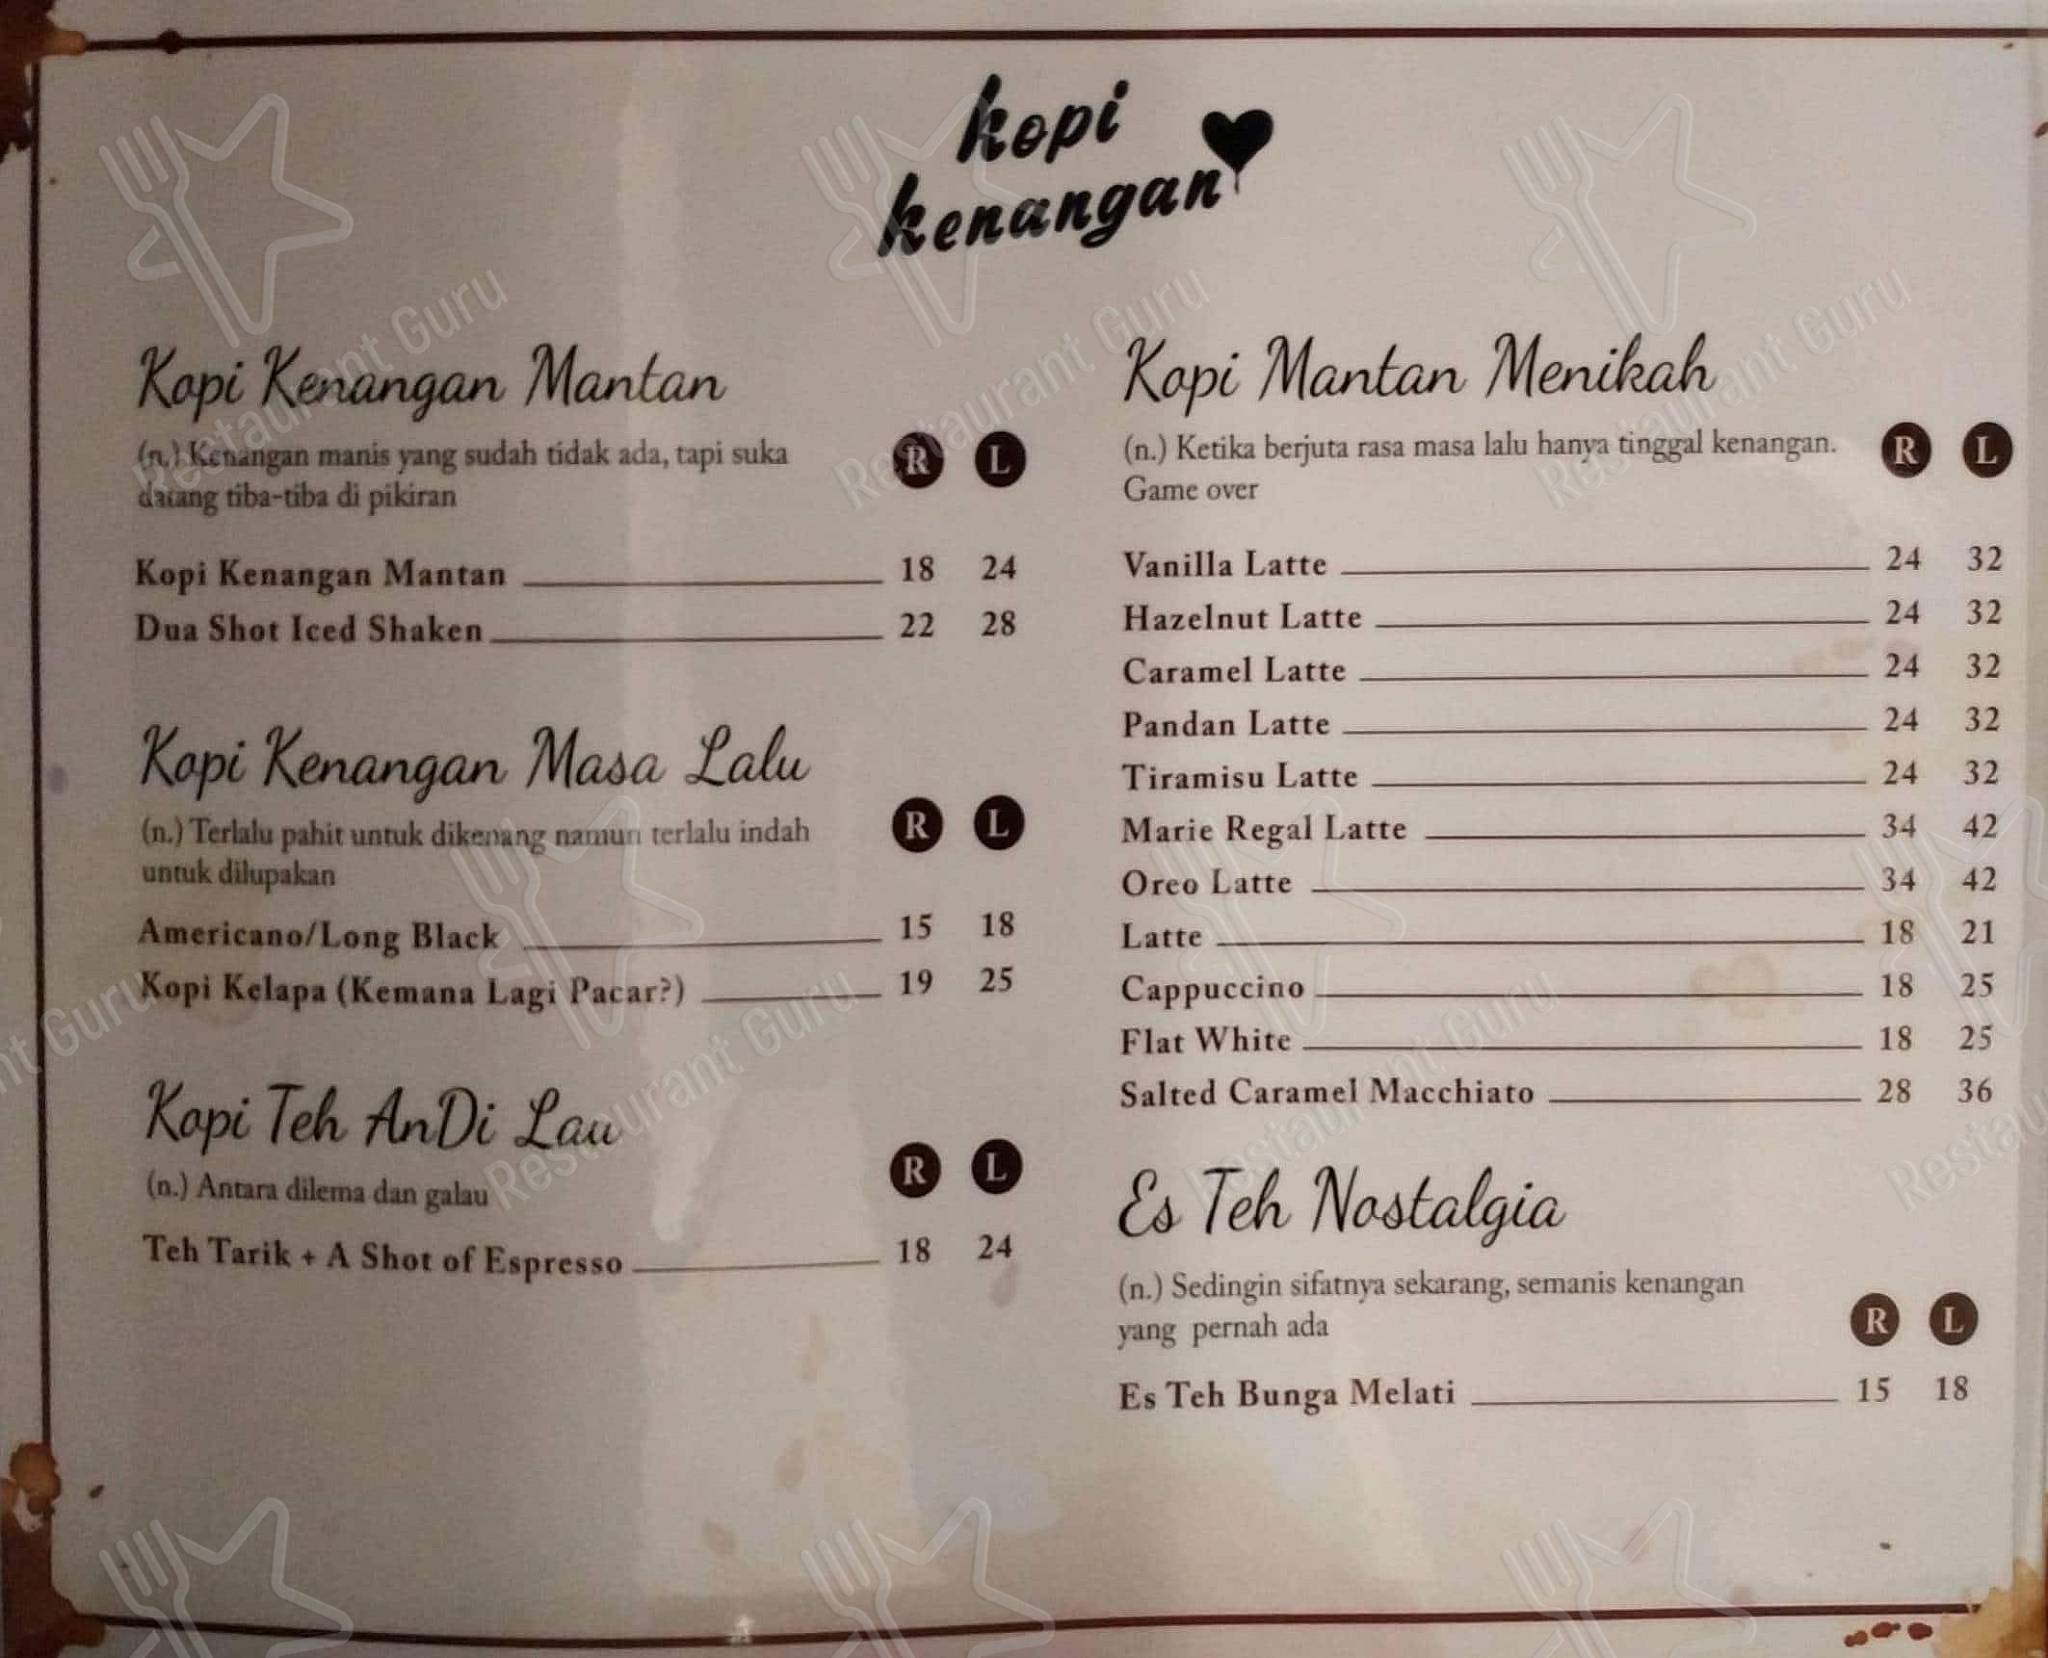 kopi
kenangan
Kopi Kenangan Mantan
(n.) Kenangan manis yang sudah tidak ada, tapi suka
datang tiba-tiba di pikiran
R L
Kopi Kenangan Mantan 18 24
Dua Shot Iced Shaken 22 28
Kopi Kenangan Masa Lalu
(n.) Terlalu pahit untuk dikenang namun terlalu indah
untuk dilupakan
R L
Americano/Long Black 15 18
Kopi Kelapa (Kemana Lagi Pacar?) 19 25
Kopi Teh AnDi Lau
(n.) Antara dilema dan galau
R L
Teh Tarik + A Shot of Espresso 18 24
Kopi Mantan Menikah
(n.) Ketika berjuta rasa masa lalu hanya tinggal kenangan.
Game over
R L
Vanilla Latte 24 32
Hazelnut Latte 24 32
Caramel Latte 24 32
Pandan Latte 24 32
Tiramisu Latte 24 32
Marie Regal Latte 34 42
Oreo Latte 34 42
Latte 18 21
Cappuccino 18 25
Flat White 18 25
Salted Caramel Macchiato 28 36
Es Teh Nostalgia
(n.) Sedingin sifatnya sekarang, semanis kenangan
yang pernah ada
R L
Es Teh Bunga Melati 15 18
Restaurant Guru
Restaurant Guru
Restaurant Guru
nt Guru
Restaurant Guru
Restaurant Guru
Restau